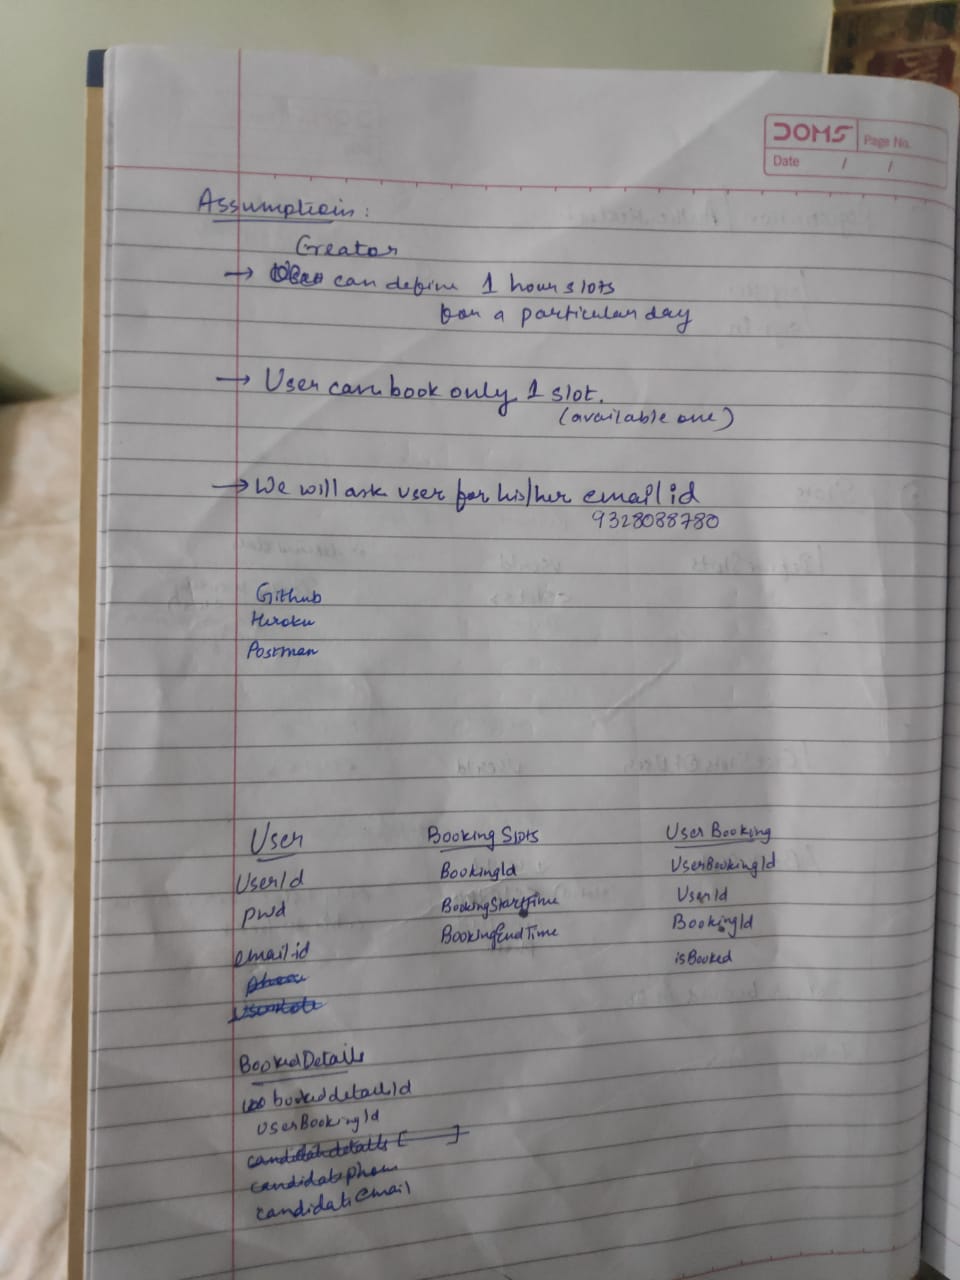 DOMS
Page No.
Date / /
Assumptions:
Creator
→ can define 1 hour slots
for a particular day
→ User can book only 1 slot.
(available one)
→ We will ask user for his/her email id
9328088780
Github
Heroku
Postman
User
BookingSlots
UserBooking
UserId
BookingId
UserBookingId
pwd
BookingStartTime
UserId
email id
BookingEndTime
BookingId
phone
isBooked
BookedDetails
bookeddetailId
userBookingId
candidatedetails [ ]
candidatephone
candidateemail